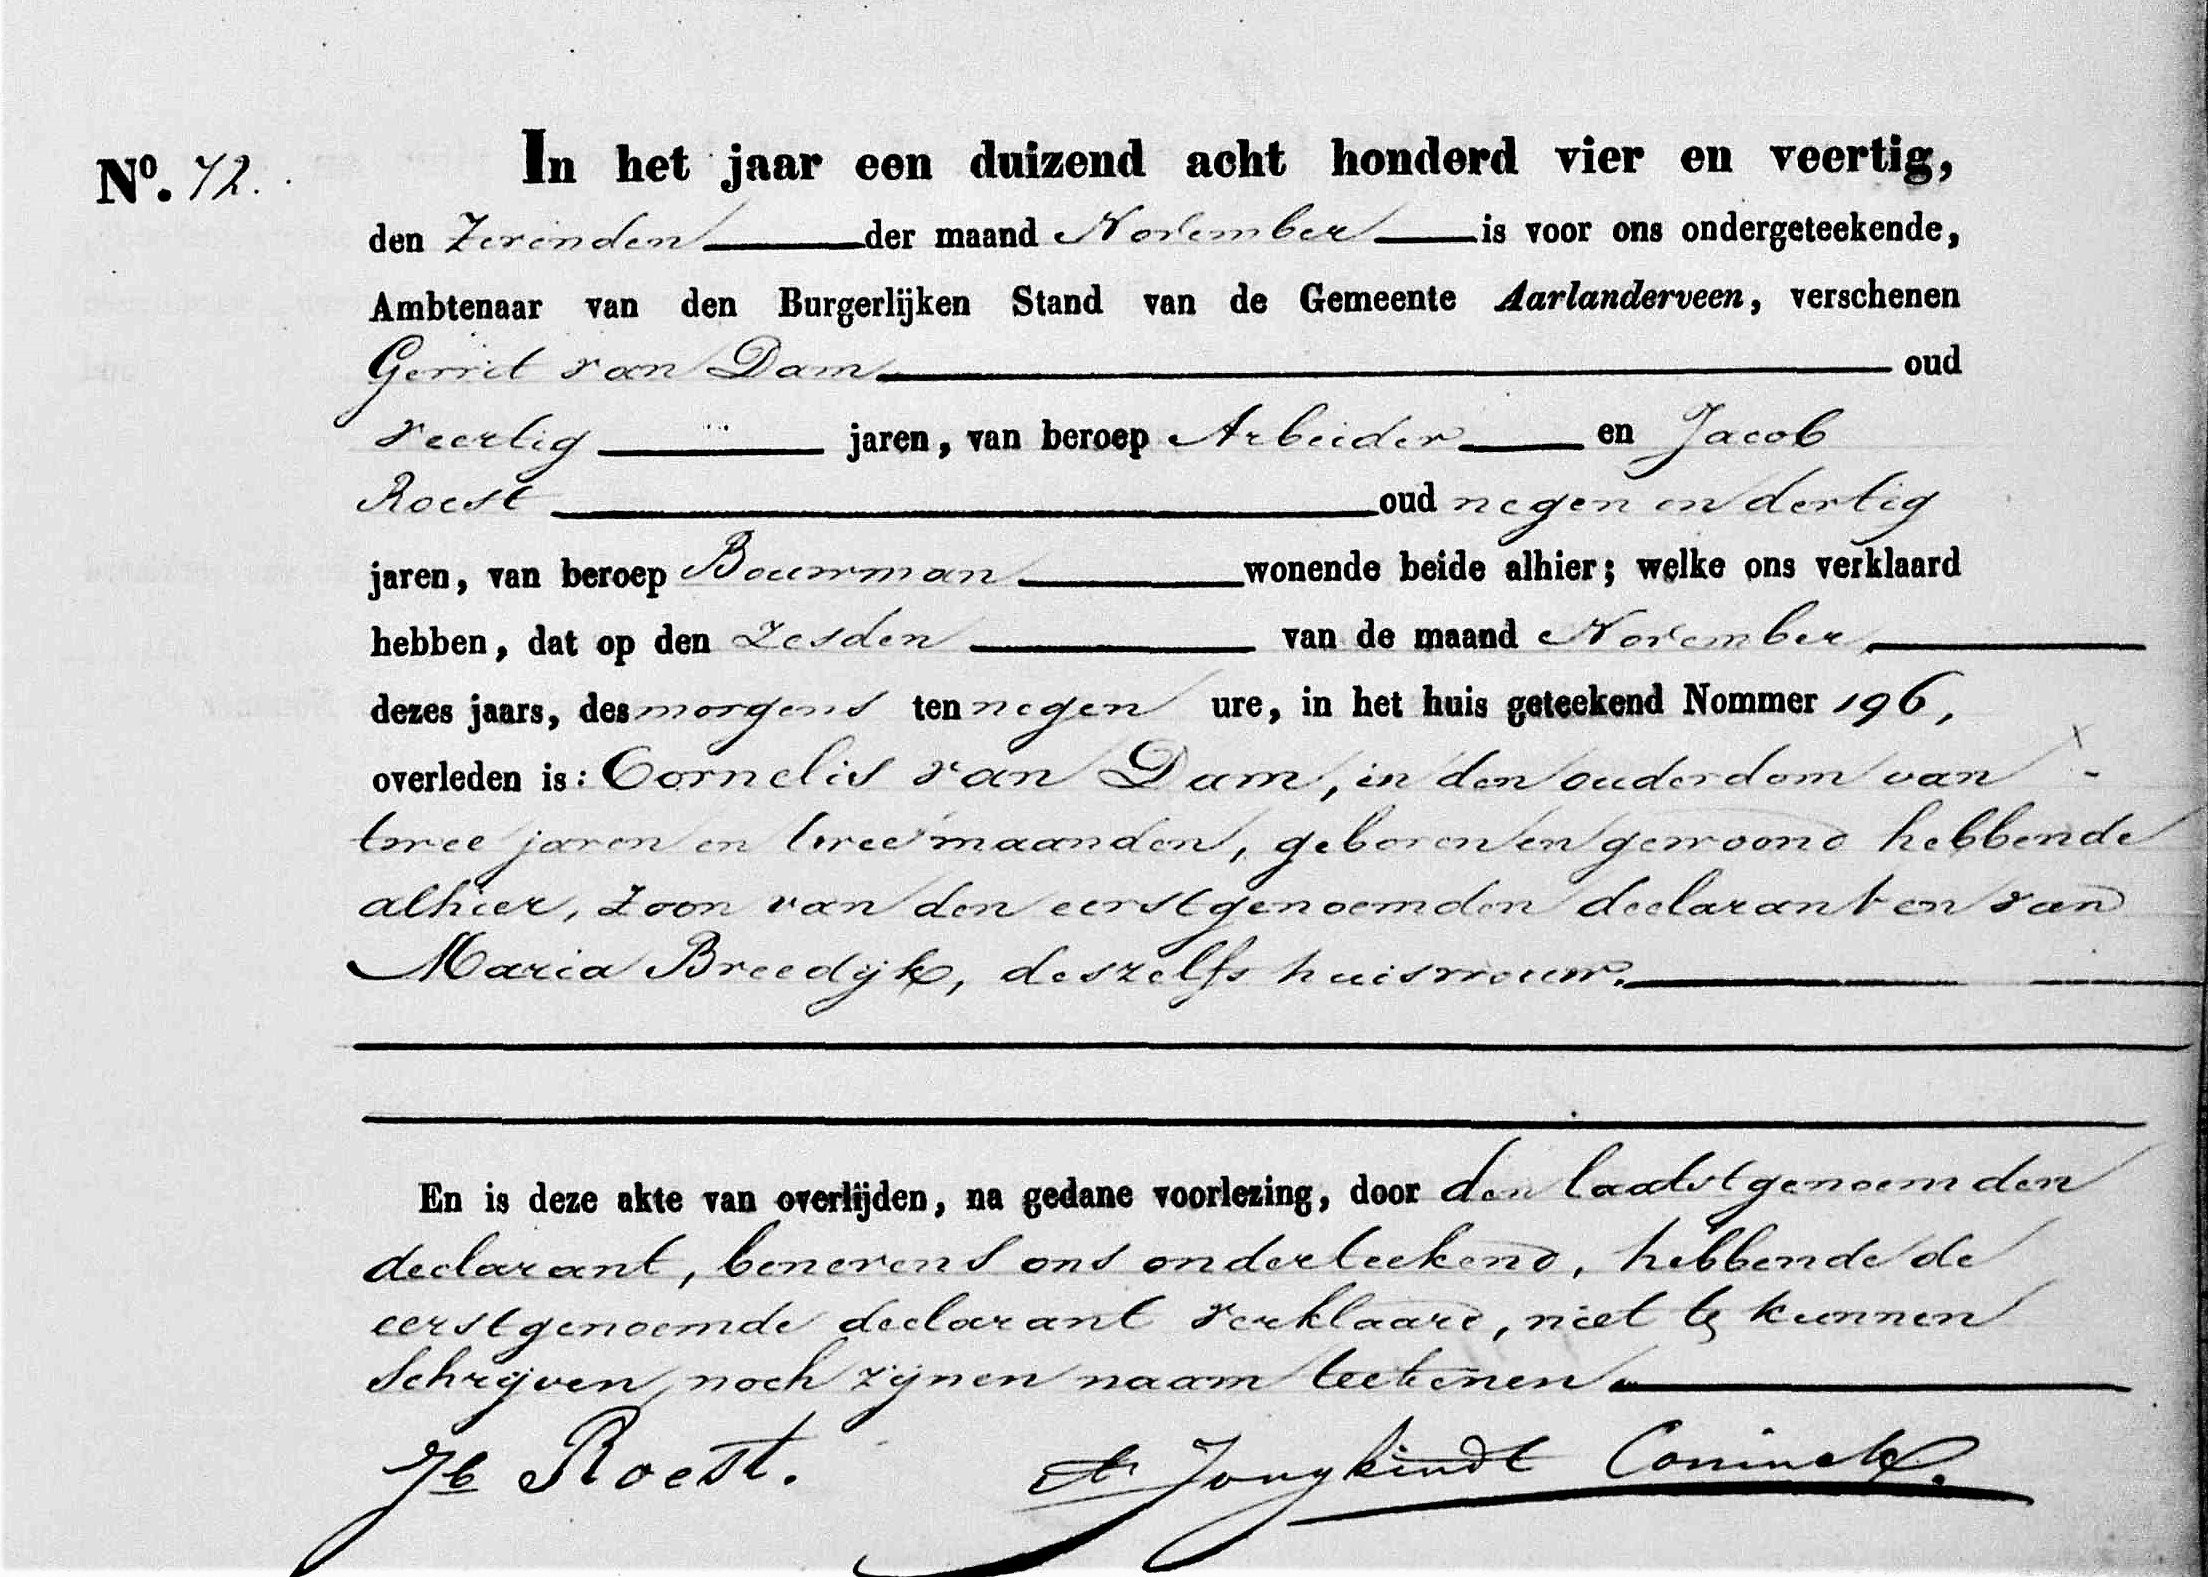 Nº. 72.
In het jaar een duizend acht honderd vier en veertig,
den Zevenden der maand November is voor ons ondergeteekende,
Ambtenaar van den Burgerlijken Stand van de Gemeente Aarlanderveen, verschenen
Gerrit van Dam oud
veertig jaren, van beroep Arbeider en Jacob
Roest oud negen en dertig
jaren, van beroep Bouwman wonende beide alhier; welke ons verklaard
hebben, dat op den Zesden van de maand November
dezes jaars, des morgens ten negen ure, in het huis geteekend Nommer 196,
overleden is: Cornelis van Dam, in den ouderdom van
twee jaren en twee maanden, geboren en gewoond hebbende
alhier, zoon van den eerstgenoemden declarant en van
Maria Breedijk, deszelfs huisvrouw.
En is deze akte van overlijden, na gedane voorlezing, door den laatstgenoemden
declarant, benevens ons onderteekend, hebbende de
eerstgenoemde declarant verklaard, niet te kunnen
Schrijven noch zijnen naam teekenen.
Jb Roest. Jongkindt Coninck.